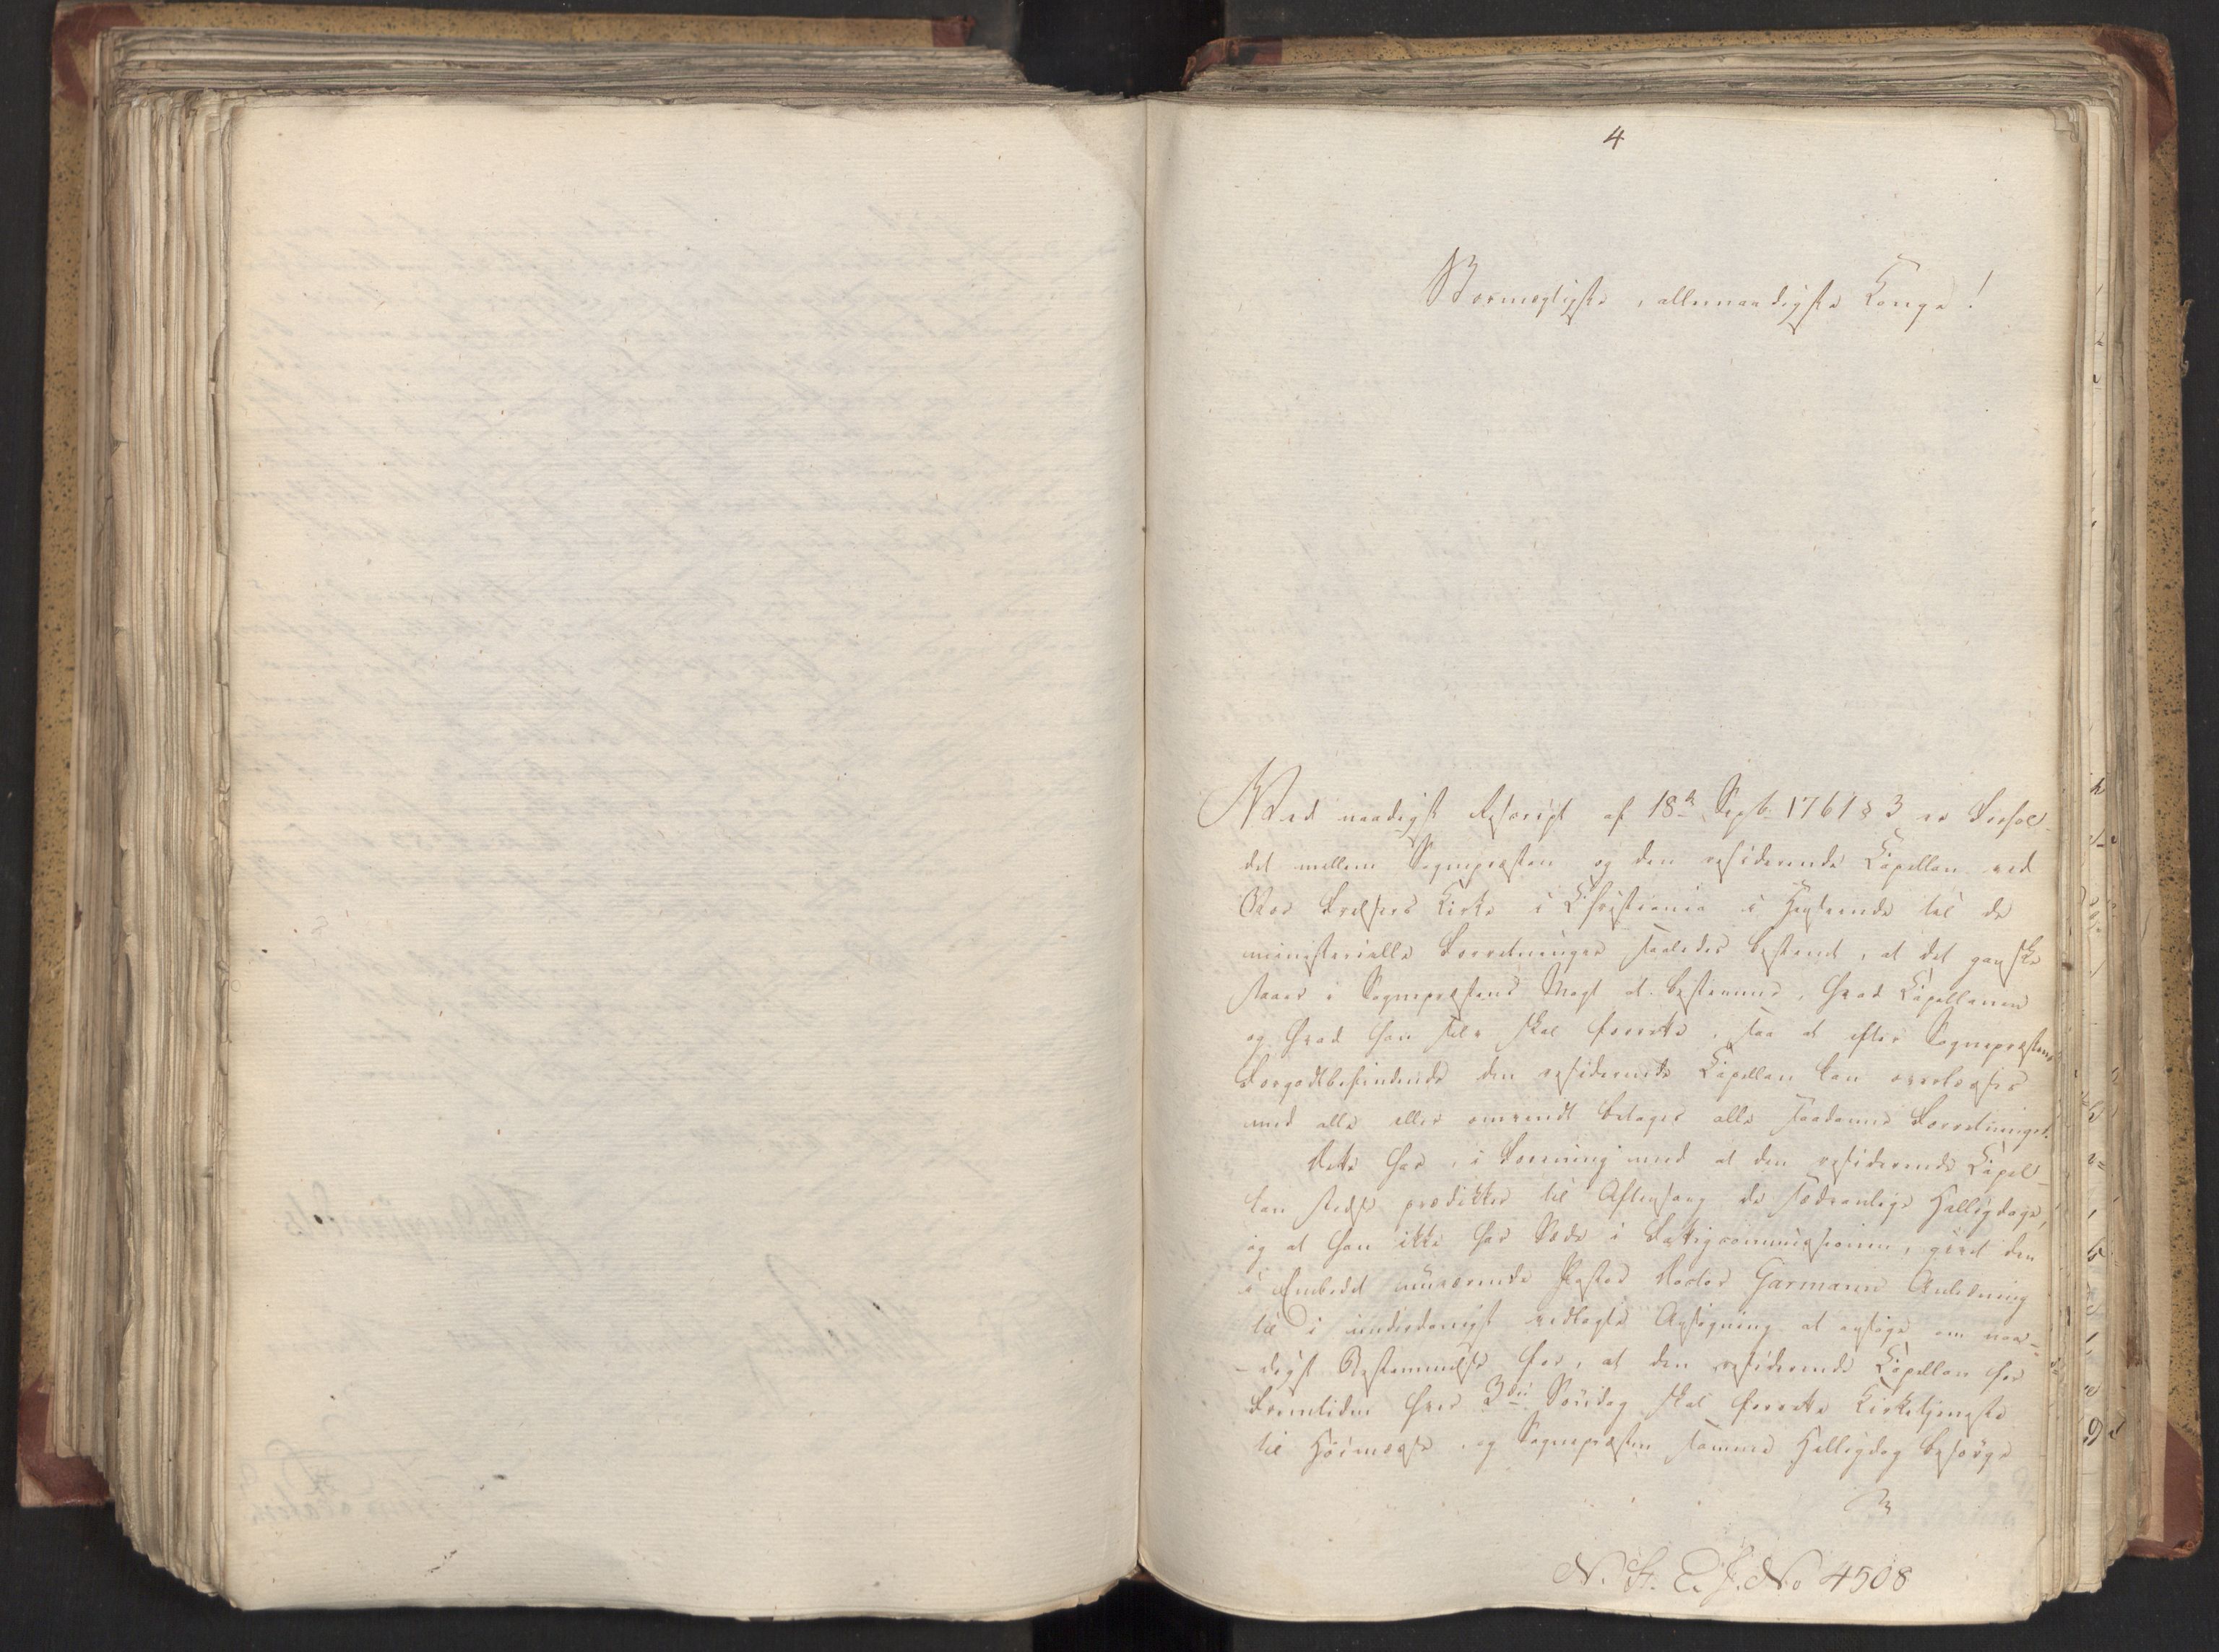 4
Stormægtigste, allernaadigste Konge!
Ved naadigst Rescript af 18de Sept. 1761 § 3 er Forhol-
det mellem Sognepræsten og den residerende Capellan ved
Vor Frelsers Kirke i Christiania i Henseende til de
ministerielle Forretninger saaledes bestemt, at det ganske
staaer i Sognepræstens Magt at bestemme, hvad Capellanen
og hvad han selv skal forrette, saa at efter Sognepræstens
Forgodtbefindende den residerende Capellan kan overlæsses
med alle eller omvendt betages alle saadanne Forretninger.
Dette har, i Forening med at den residerende Capel-
lan stedse prædikker til Aftensang de sædvanlige Helligdage,
og at han ikke har Sæde i Fattigcommissionen, givet den
i Embedet nuværende Pastor Doctor Garmann Anledning
til i underdanigst vedlagte Ansøgning at ansøge om naa-
digst Bestemmelse for, at den residerende Capellan for
Fremtiden hver 3die Søndag skal forrette Kirketjeneste
til Høimesse, og Sognepræsten samme Helligdag besørge
N. K. E. J. No 4508